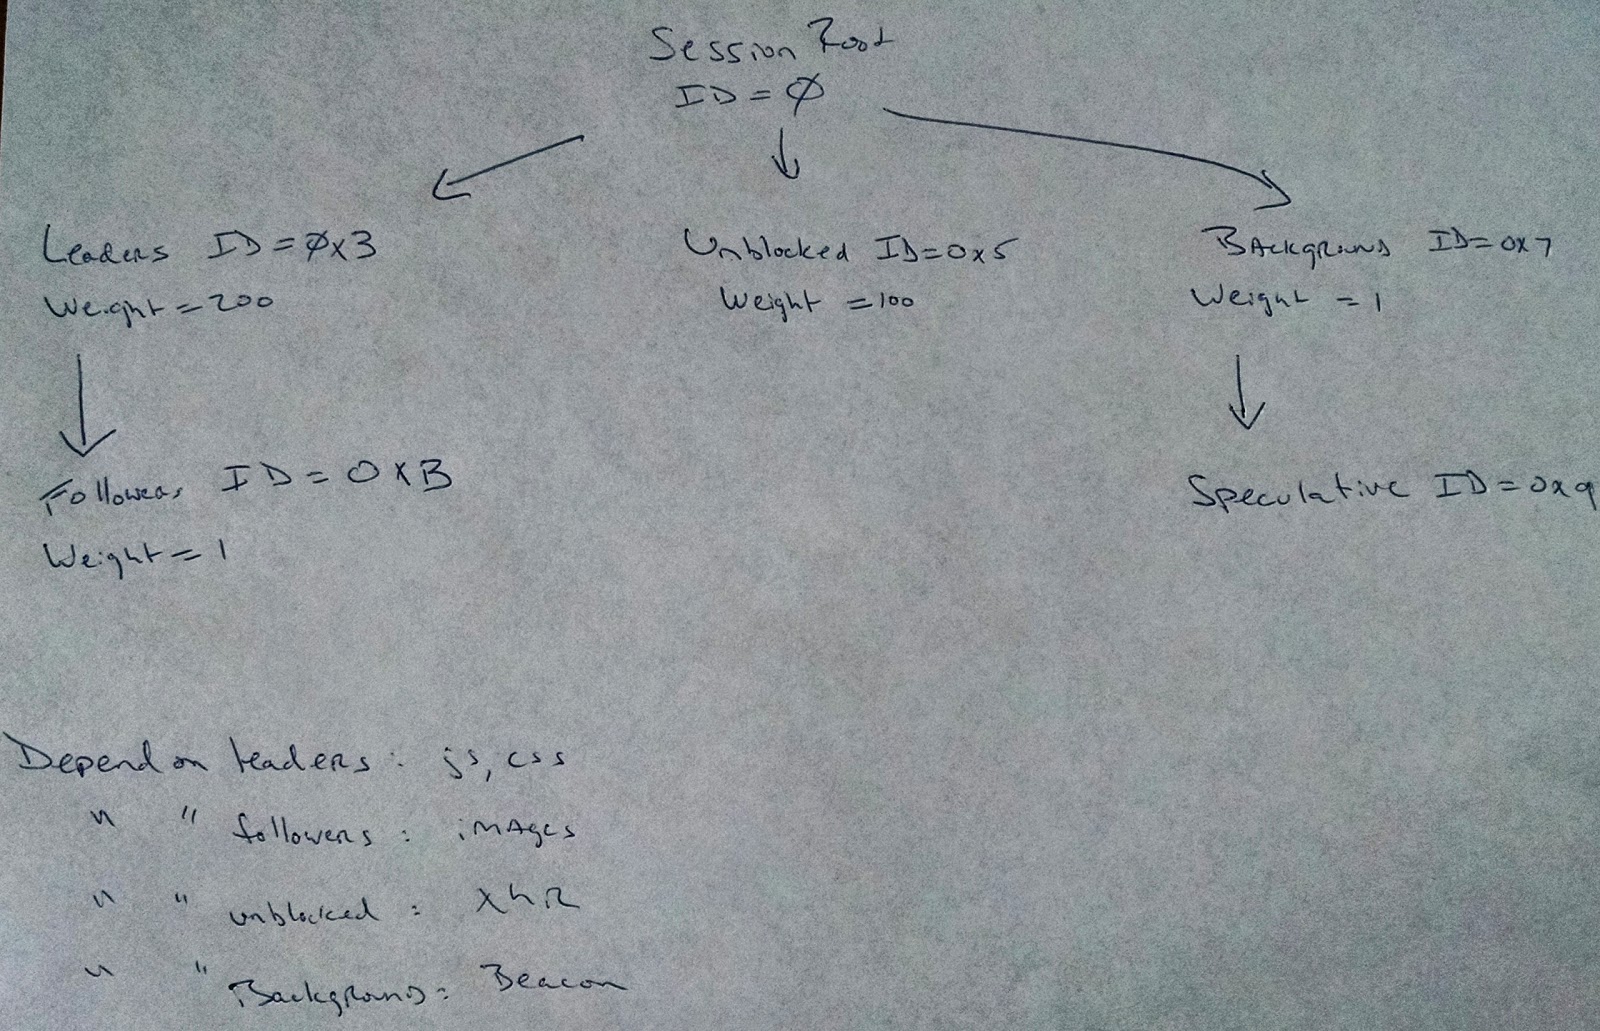 Session Root
ID = Ø
Leaders ID = Øx3
Weight = 200
Unblocked ID=0x5
Weight = 100
Background ID=0x7
Weight = 1
Followers ID = 0xB
Weight = 1
Speculative ID=0x9
Depend on leaders: js, css
" " followers: images
" " unblocked: xhr
" " Background: Beacon